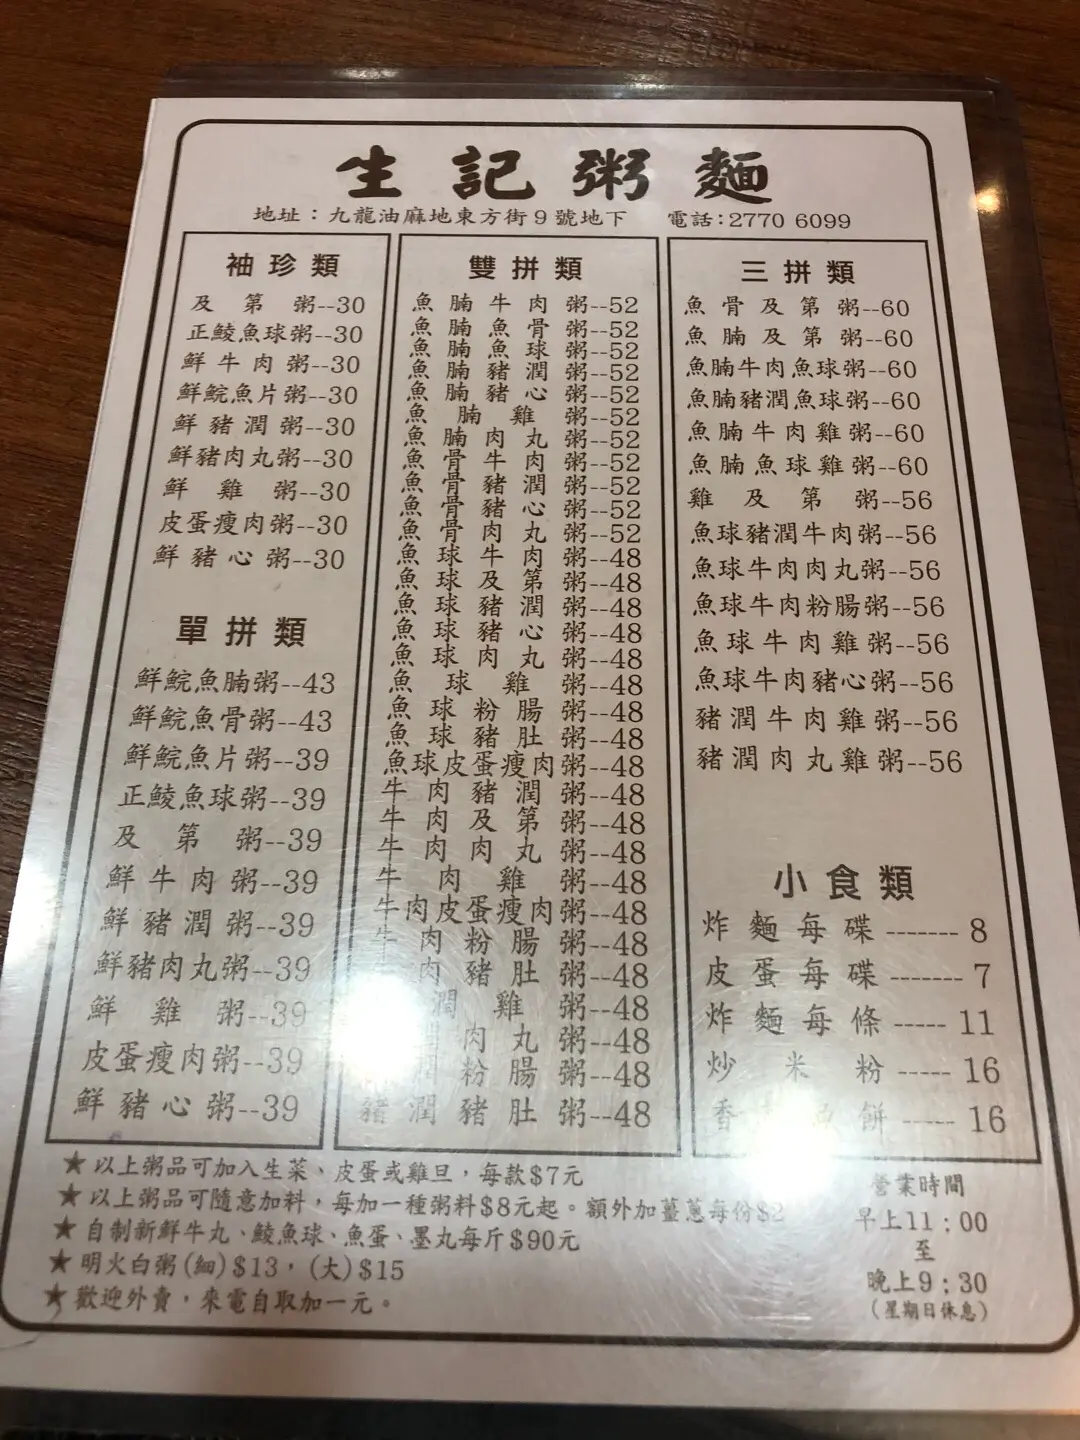 生記粥麵
地址：九龍油麻地東方街9號地下 電話:2770 6099
袖珍類
及第粥--30
正鯪魚球粥--30
鮮牛肉粥--30
鮮鯇魚片粥--30
鮮豬潤粥--30
鮮豬肉丸粥--30
鮮雞粥--30
皮蛋瘦肉粥--30
鮮豬心粥--30
單拼類
鮮鯇魚腩粥--43
鮮鯇魚骨粥--43
鮮鯇魚片粥--39
正鯪魚球粥--39
及第粥--39
鮮牛肉粥--39
鮮豬潤粥--39
鮮豬肉丸粥--39
鮮雞粥--39
皮蛋瘦肉粥--39
鮮豬心粥--39
雙拼類
魚腩牛肉粥--52
魚腩魚骨粥--52
魚腩魚球粥--52
魚腩豬潤粥--52
魚腩豬心粥--52
魚腩雞粥--52
魚腩肉丸粥--52
魚骨牛肉粥--52
魚骨豬潤粥--52
魚骨豬心粥--52
魚骨肉丸粥--52
魚球牛肉粥--48
魚球及第粥--48
魚球豬潤粥--48
魚球豬心粥--48
魚球肉丸粥--48
魚球雞粥--48
魚球粉腸粥--48
魚球豬肚粥--48
魚球皮蛋瘦肉粥--48
牛肉豬潤粥--48
牛肉及第粥--48
牛肉肉丸粥--48
牛肉雞粥--48
牛肉皮蛋瘦肉粥--48
牛肉粉腸粥--48
肉豬肚粥--48
潤雞粥--48
肉丸粥--48
粉腸粥--48
豬潤豬肚粥--48
三拼類
魚骨及第粥--60
魚腩及第粥--60
魚腩牛肉魚球粥--60
魚腩豬潤魚球粥--60
魚腩牛肉雞粥--60
魚腩魚球雞粥--60
雞及第粥--56
魚球豬潤牛肉粥--56
魚球牛肉肉丸粥--56
魚球牛肉粉腸粥--56
魚球牛肉雞粥--56
魚球牛肉豬心粥--56
豬潤牛肉雞粥--56
豬潤肉丸雞粥--56
小食類
炸麵每碟-------8
皮蛋每碟-------7
炸麵每條-----11
炒米粉-----16
香 餅-----16
★以上粥品可加入生菜、皮蛋或雞旦，每款$7元
★以上粥品可隨意加料，每加一種粥料$8元起。額外加薑蔥每份$2
★自制新鮮牛丸、鯪魚球、魚蛋、墨丸每斤$90元
★明火白粥(細)$13，(大)$15
★歡迎外賣，來電自取加一元。
營業時間
早上11：00
至
晚上9：30
(星期日休息)